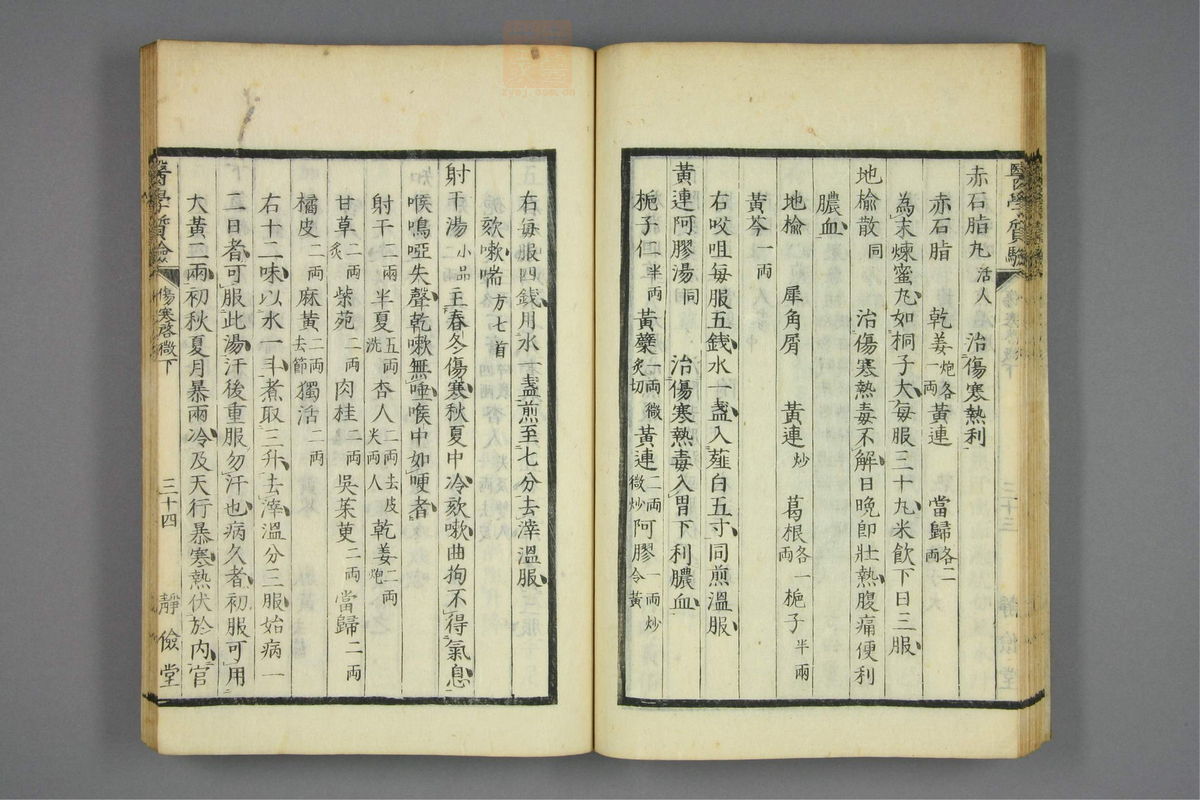 赤石脂丸 活人 治傷寒熱利
赤石脂 乾姜 炮各一兩 黃連 當歸 各二兩
為末煉蜜丸如桐子大每服三十丸米飲下日三服
地榆散 同 治傷寒熱毒不解日晚即壯熱腹痛便利
膿血
地榆 犀角屑 黃連 炒 葛根 各一兩 梔子 半兩
黃芩 一兩
右㕮咀每服五錢水一盞入薤白五寸同煎溫服
黃連阿膠湯 同 治傷寒熱毒入胃下利膿血
梔子仁 半兩 黃蘗 一兩微炙切 黃連 二兩微炒 阿膠 一兩炒令黃
醫學質驗 傷寒啓微下 三十四 靜儉堂
右每服四錢用水一盞煎至七分去滓溫服
欬嗽喘 方七首
射干湯 小品 主春冬傷寒秋夏中冷欬嗽曲拘不得氣息
喉鳴啞失聲乾嗽無唾喉中如哽者
射干 二兩 半夏 五兩洗 杏人 二兩去皮尖兩人 乾姜 二兩炮
甘草 二兩炙 紫苑 二兩 肉桂 二兩 吳茱萸 二兩 當歸 二兩
橘皮 二兩 麻黃 二兩去節 獨活 二兩
右十二味以水一斗煮取三升去滓溫分三服始病一
二日者可服此湯汗後重服勿汗也病久者初服可用
大黃二兩初秋夏月暴雨冷及天行暴寒熱伏於內宜